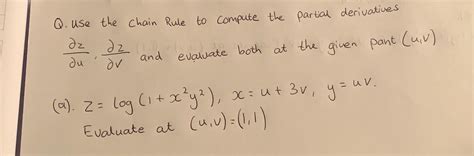 Q. use the Chain Rule to compute the partial derivatives
∂z/∂u , ∂z/∂v and evaluate both at the given point (u,v)
(a). z = log(1 + x²y²), x = u + 3v, y = uv.
Evaluate at (u,v) = (1,1)